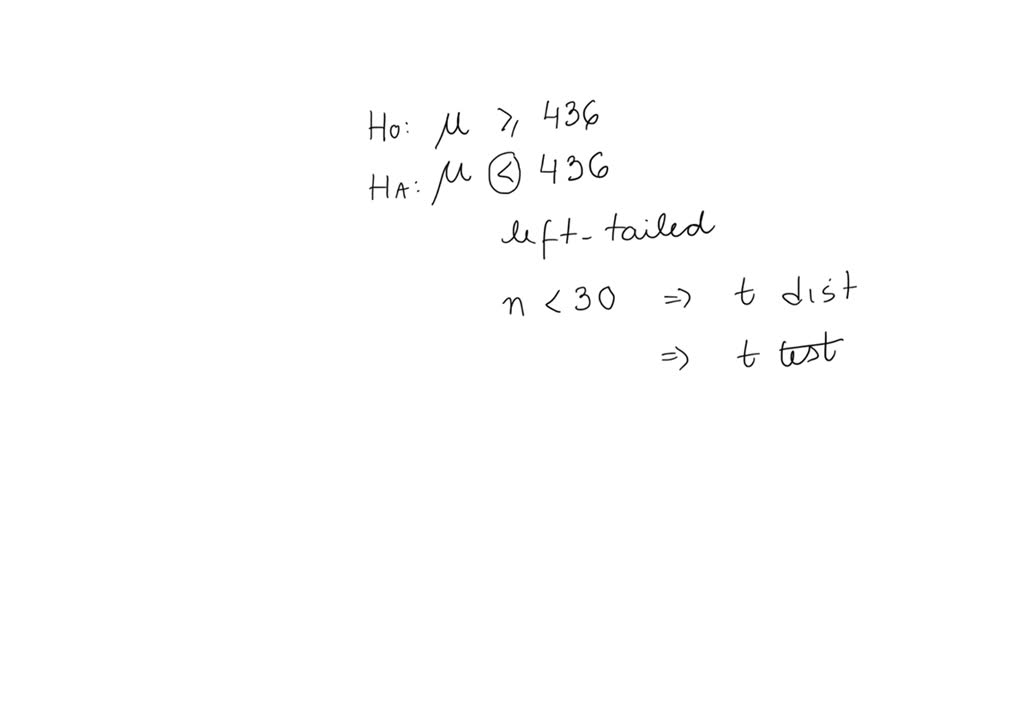 Ho: μ ⩾ 436
HA: μ < 436
left-tailed
n < 30 => t dist
=> t test